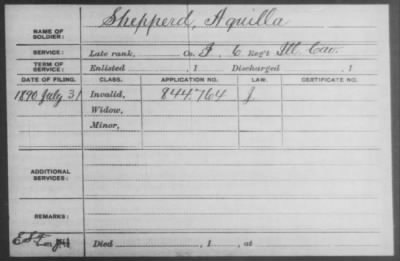 Shepperd, Aquilla
NAME OF SOLDIER:
SERVICE: Late rank, Co. I, 6 Reg't Ill. Cav.
TERM OF SERVICE: Enlisted , 1 Discharged , 1
DATE OF FILING. CLASS. APPLICATION NO. LAW. CERTIFICATE NO.
1890 July 31 Invalid, 844.764 J.
Widow,
Minor,
ADDITIONAL SERVICES:
REMARKS:
Died , 1 , at